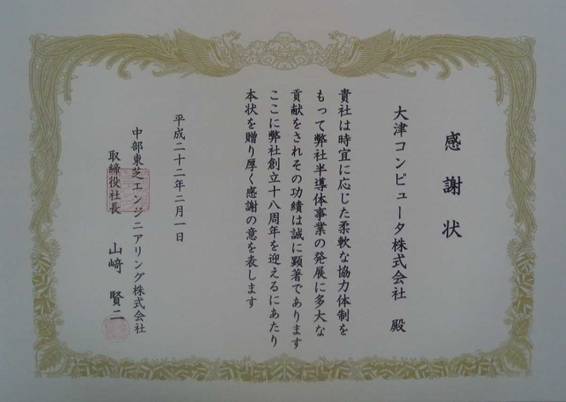 感謝状
大津コンピュータ株式会社 殿
貴社は時宜に応じた柔軟な協力体制を
もって弊社半導体事業の発展に多大な
貢献をされその功績は誠に顕著であります
ここに弊社創立十八周年を迎えるにあたり
本状を贈り厚く感謝の意を表します
平成二十二年二月一日
中部東芝エンジニアリング株式会社
取締役社長 山﨑 賢二